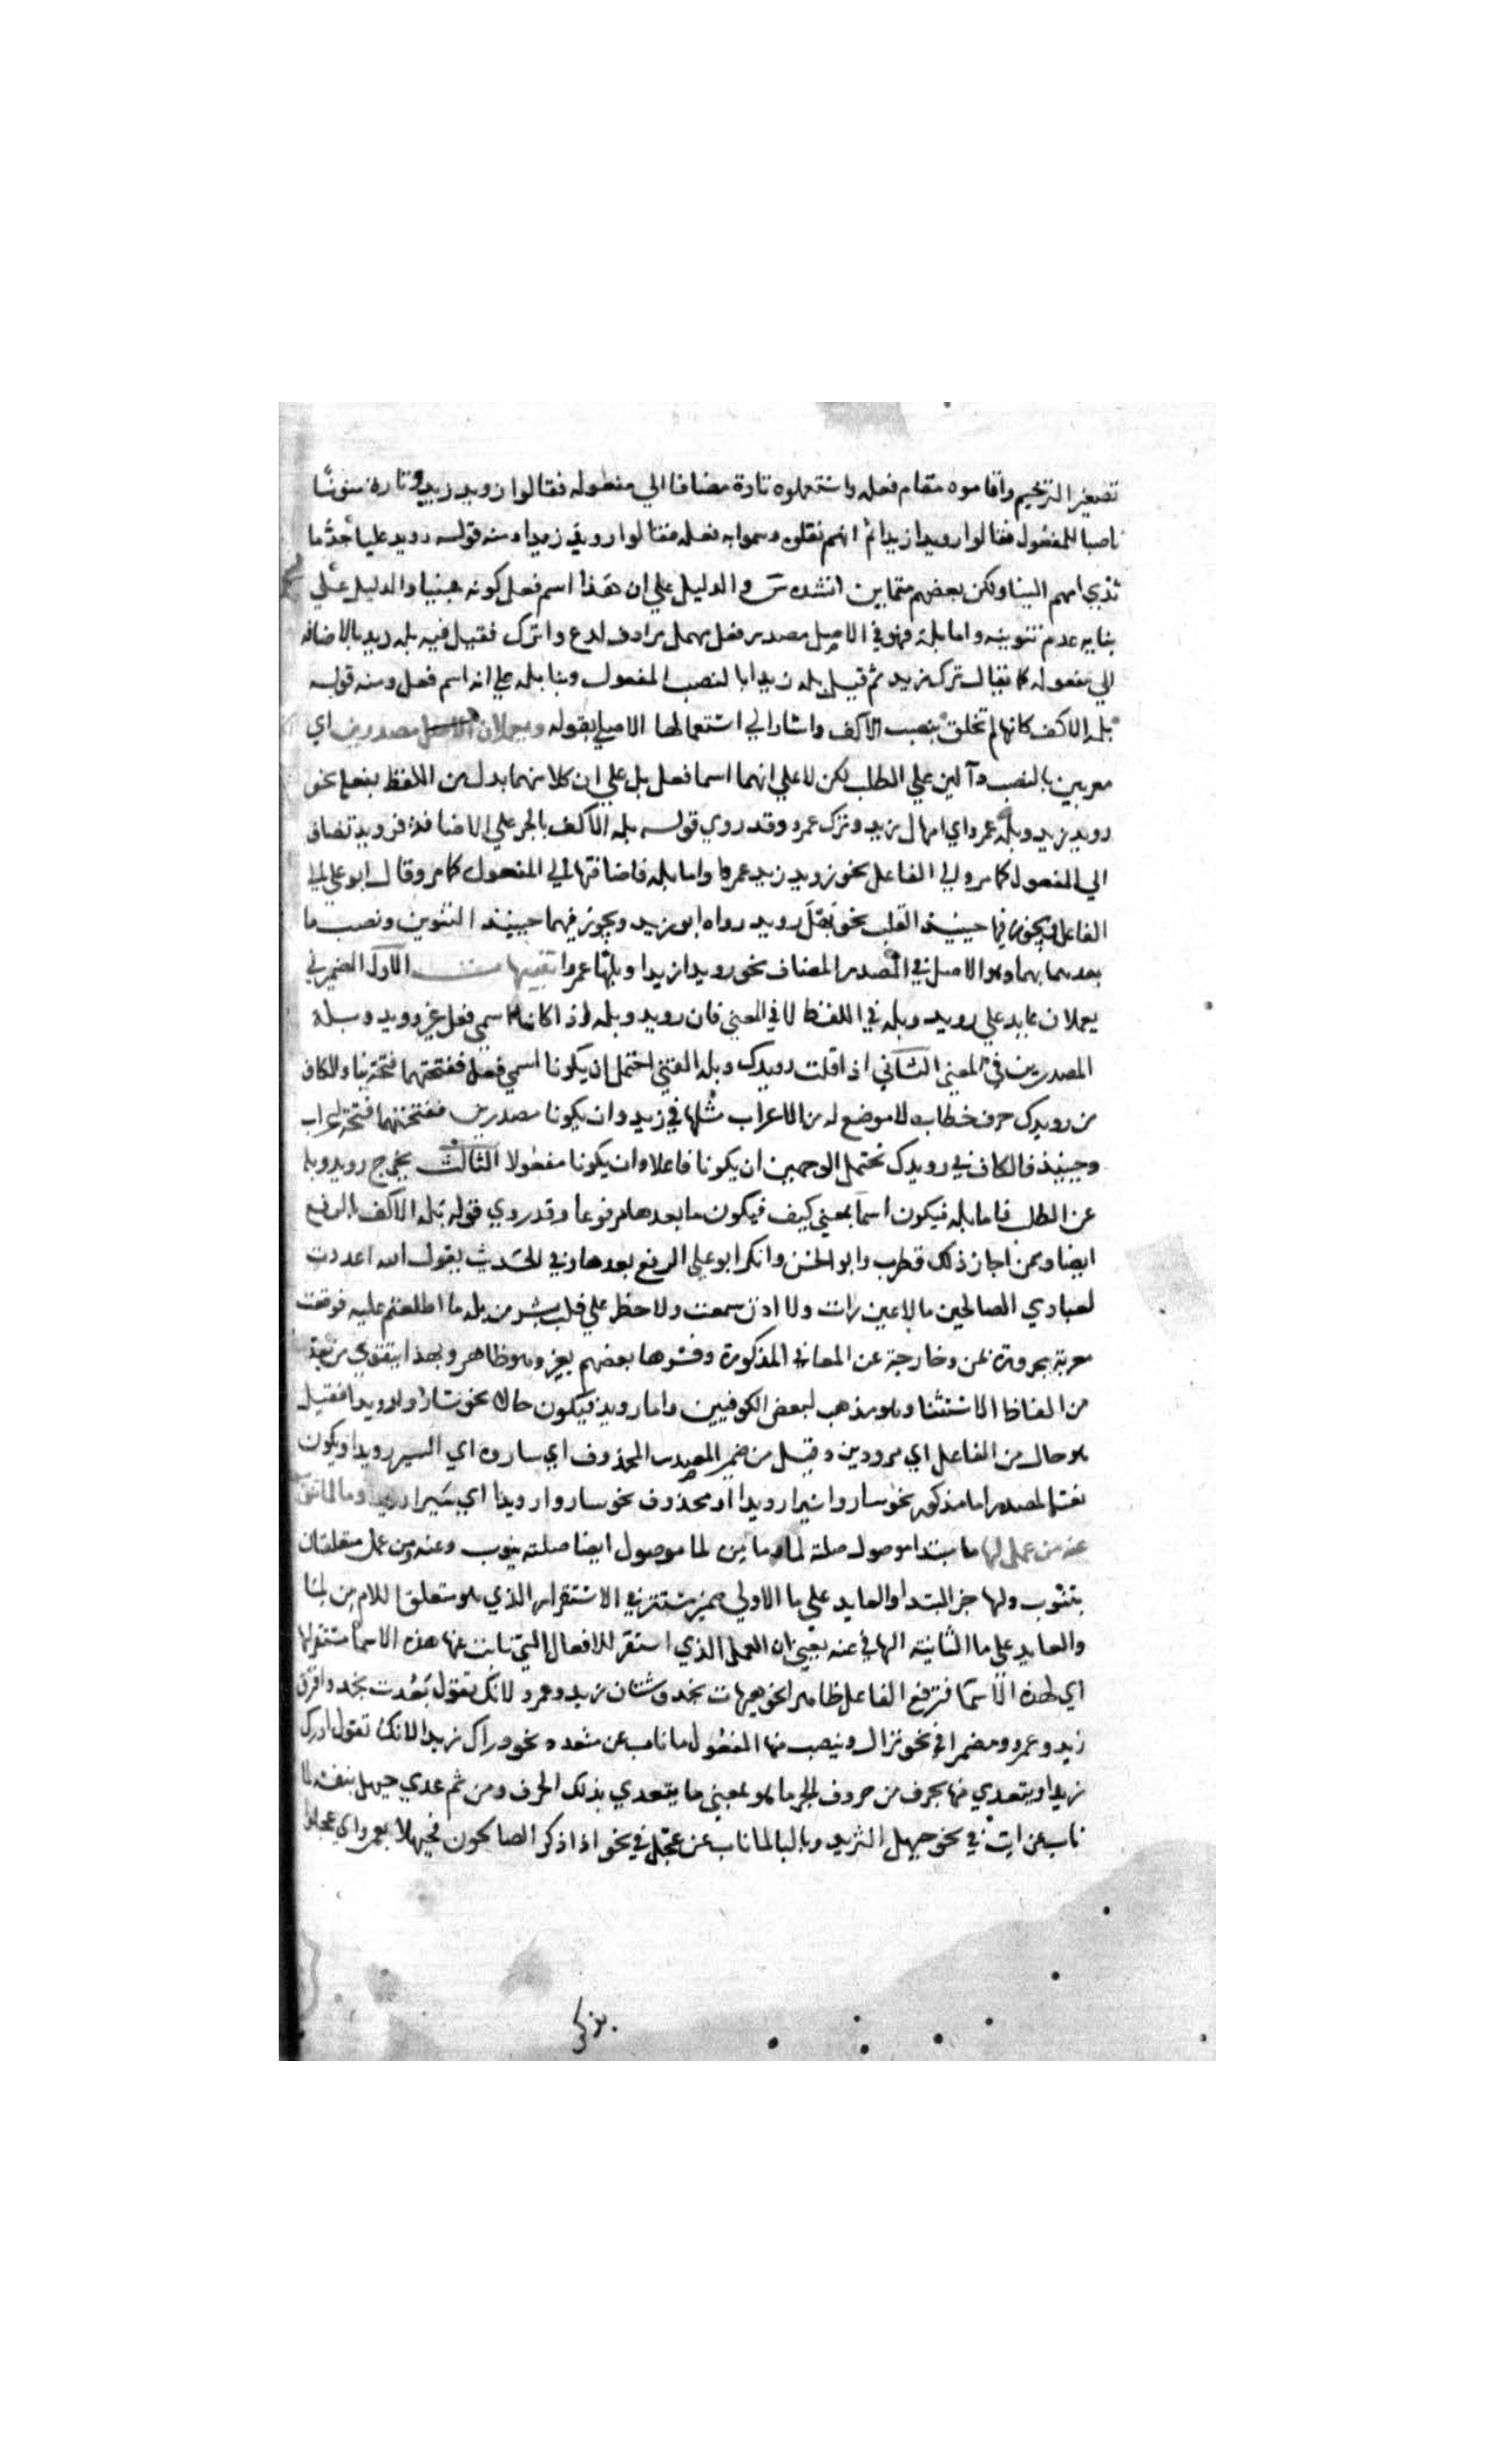 تصغير الترخيم واقاموه مقام فعله واستعملوه تارة مضافا الي مفعوله فقالوا رويد زيد وتارة منونا
ناصبا للمفعول فقالوا رويدا زيدا ثم انهم نقلوه وسموا به فعله فقالوا رويد زيدا ومنه قوله رويد عليا جد ما
ثدي امهم الينا ولكن بعضهم متماين انشده س والدليل علي ان هذا اسم فعل كونه مبنيا والدليل علي
بنايه عدم تنوينه واما بله فهو في الاصل مصدر فعل مهمل مرادف لدع واترك فقيل فيه بله زيد بالاضافه
الي مفعوله كما يقال ترك زيد ثم قيل بله زيدا بالنصب المفعول وبنا بله علي انه اسم فعل ومنه قوله
بله الاكف كانها لم تخلق بنصب الاكف واشار الي استعمالها الاصلي بقوله ويعملان مصدرين اي
معربين بالنصب دالين علي الطلب لكن لا علي انهما اسما فعل بل علي ان كلا منهما بدل من اللفظ بفعله نحو
رويد زيد وبله عمرو اي امهال زيد وترك عمرو وقد روي قوله بله الاكف بالجر علي الاضافة فرويد تضاف
الي المفعول كما مر والي الفاعل نحو رويد زيد عمرا واما بله فاضافتها الي المفعول كما مر وقال ابو علي الي
الفاعل ويجوز فيها حينيذ القلب نحو بهل رويد رواه ابو زيد ويجوز فيهما حينيذ التنوين ونصب ما
بعدهما بهما وهو الاصل في المصدر المضاف نحو رويدا زيدا وبلها عمرا تنبيهات الاول الضمير في
يعملان عايد علي رويد وبله في اللفظ لا في المعني فان رويد وبله اذا كانا اسمي فعل غير رويد وبله
المصدرين في المعني الثاني اذا قلت رويدك وبله الفتي احتمل ان يكونا اسمي فعل ففتحتهما فتحة بنا والكاف
من رويدك حرف خطاب لا موضع له من الاعراب مثلها في زيد وان يكونا مصدرين ففتحتهما فتحة اعراب
وحينيذ فالكاف في رويدك تحتمل الوجهين ان يكونا فاعلا وان يكونا مفعولا الثالث يخرج رويد وبله
عن الطلب فاما بله فيكون اسما بمعني كيف فيكون ما بعدها مرفوعا وقد روي قوله بله الاكف بالرفع
ايضا وممن اجاز ذلك قطرب وابو الحسن وانكر ابو علي الرفع بعدها وفي الحديث يقول الله اعددت
لعبادي الصالحين ما لا عين رات ولا اذن سمعت ولا خطر علي قلب بشر من بله ما اطلعتم عليه فوقعت
معربة مجرورة بمن وخارجة عن المعاني المذكورة وفسرها بعضهم بغير وهو ظاهر وبهذا يتقوي من يعد
من الفاظ الاستثنا وهو مذهب لبعض الكوفيين واما رويد فيكون حالا نحو ساروا رويدا فقيل
هو حال من الفاعل اي مرودين وقيل من ضمير المصدر المحذوف اي ساروه اي السير رويدا ويكون
نعتا لمصدر اما مذكور نحو ساروا سيرا رويدا او محذوف نحو ساروا رويدا اي سيرا رويدا وما لما تنوب
عنه من عمل لها ما مبتدا موصول صلته لما وما من لما موصول ايضا صلته ينوب وعنه ومن عمل متعلقتان
بتنوب ولها خبر المبتدا والعايد علي ما الاولي ضمير مستتر في الاستقرار الذي هو متعلق اللام من لما
والعايد علي ما الثانية الها في عنه يعني ان العمل الذي استقر للافعال التي نابت عنها هذه الاسما مستقر لها
اي لهذه الاسما فترفع الفاعل ظاهرا نحو هيهات نجد وشتان زيد وعمرو لانك تقول بعدت نجد وافترق
زيد وعمرو ومضمرا في نحو نزال وينصب منها المفعول ما ناب عن متعد نحو دراك زيدا لانك تقول ادرك
زيدا ويتعدي منها بحرف من حروف الجر ما هو بمعني ما يتعدي بذلك الحرف ومن ثم عدي حيهل بنفسه لما
ناب عن ايت في نحو حيهل الثريد وبالبا لما ناب عن عجل في نحو اذا ذكر الصالحون فحيهلا بعمر اي عجلوا
بذكر